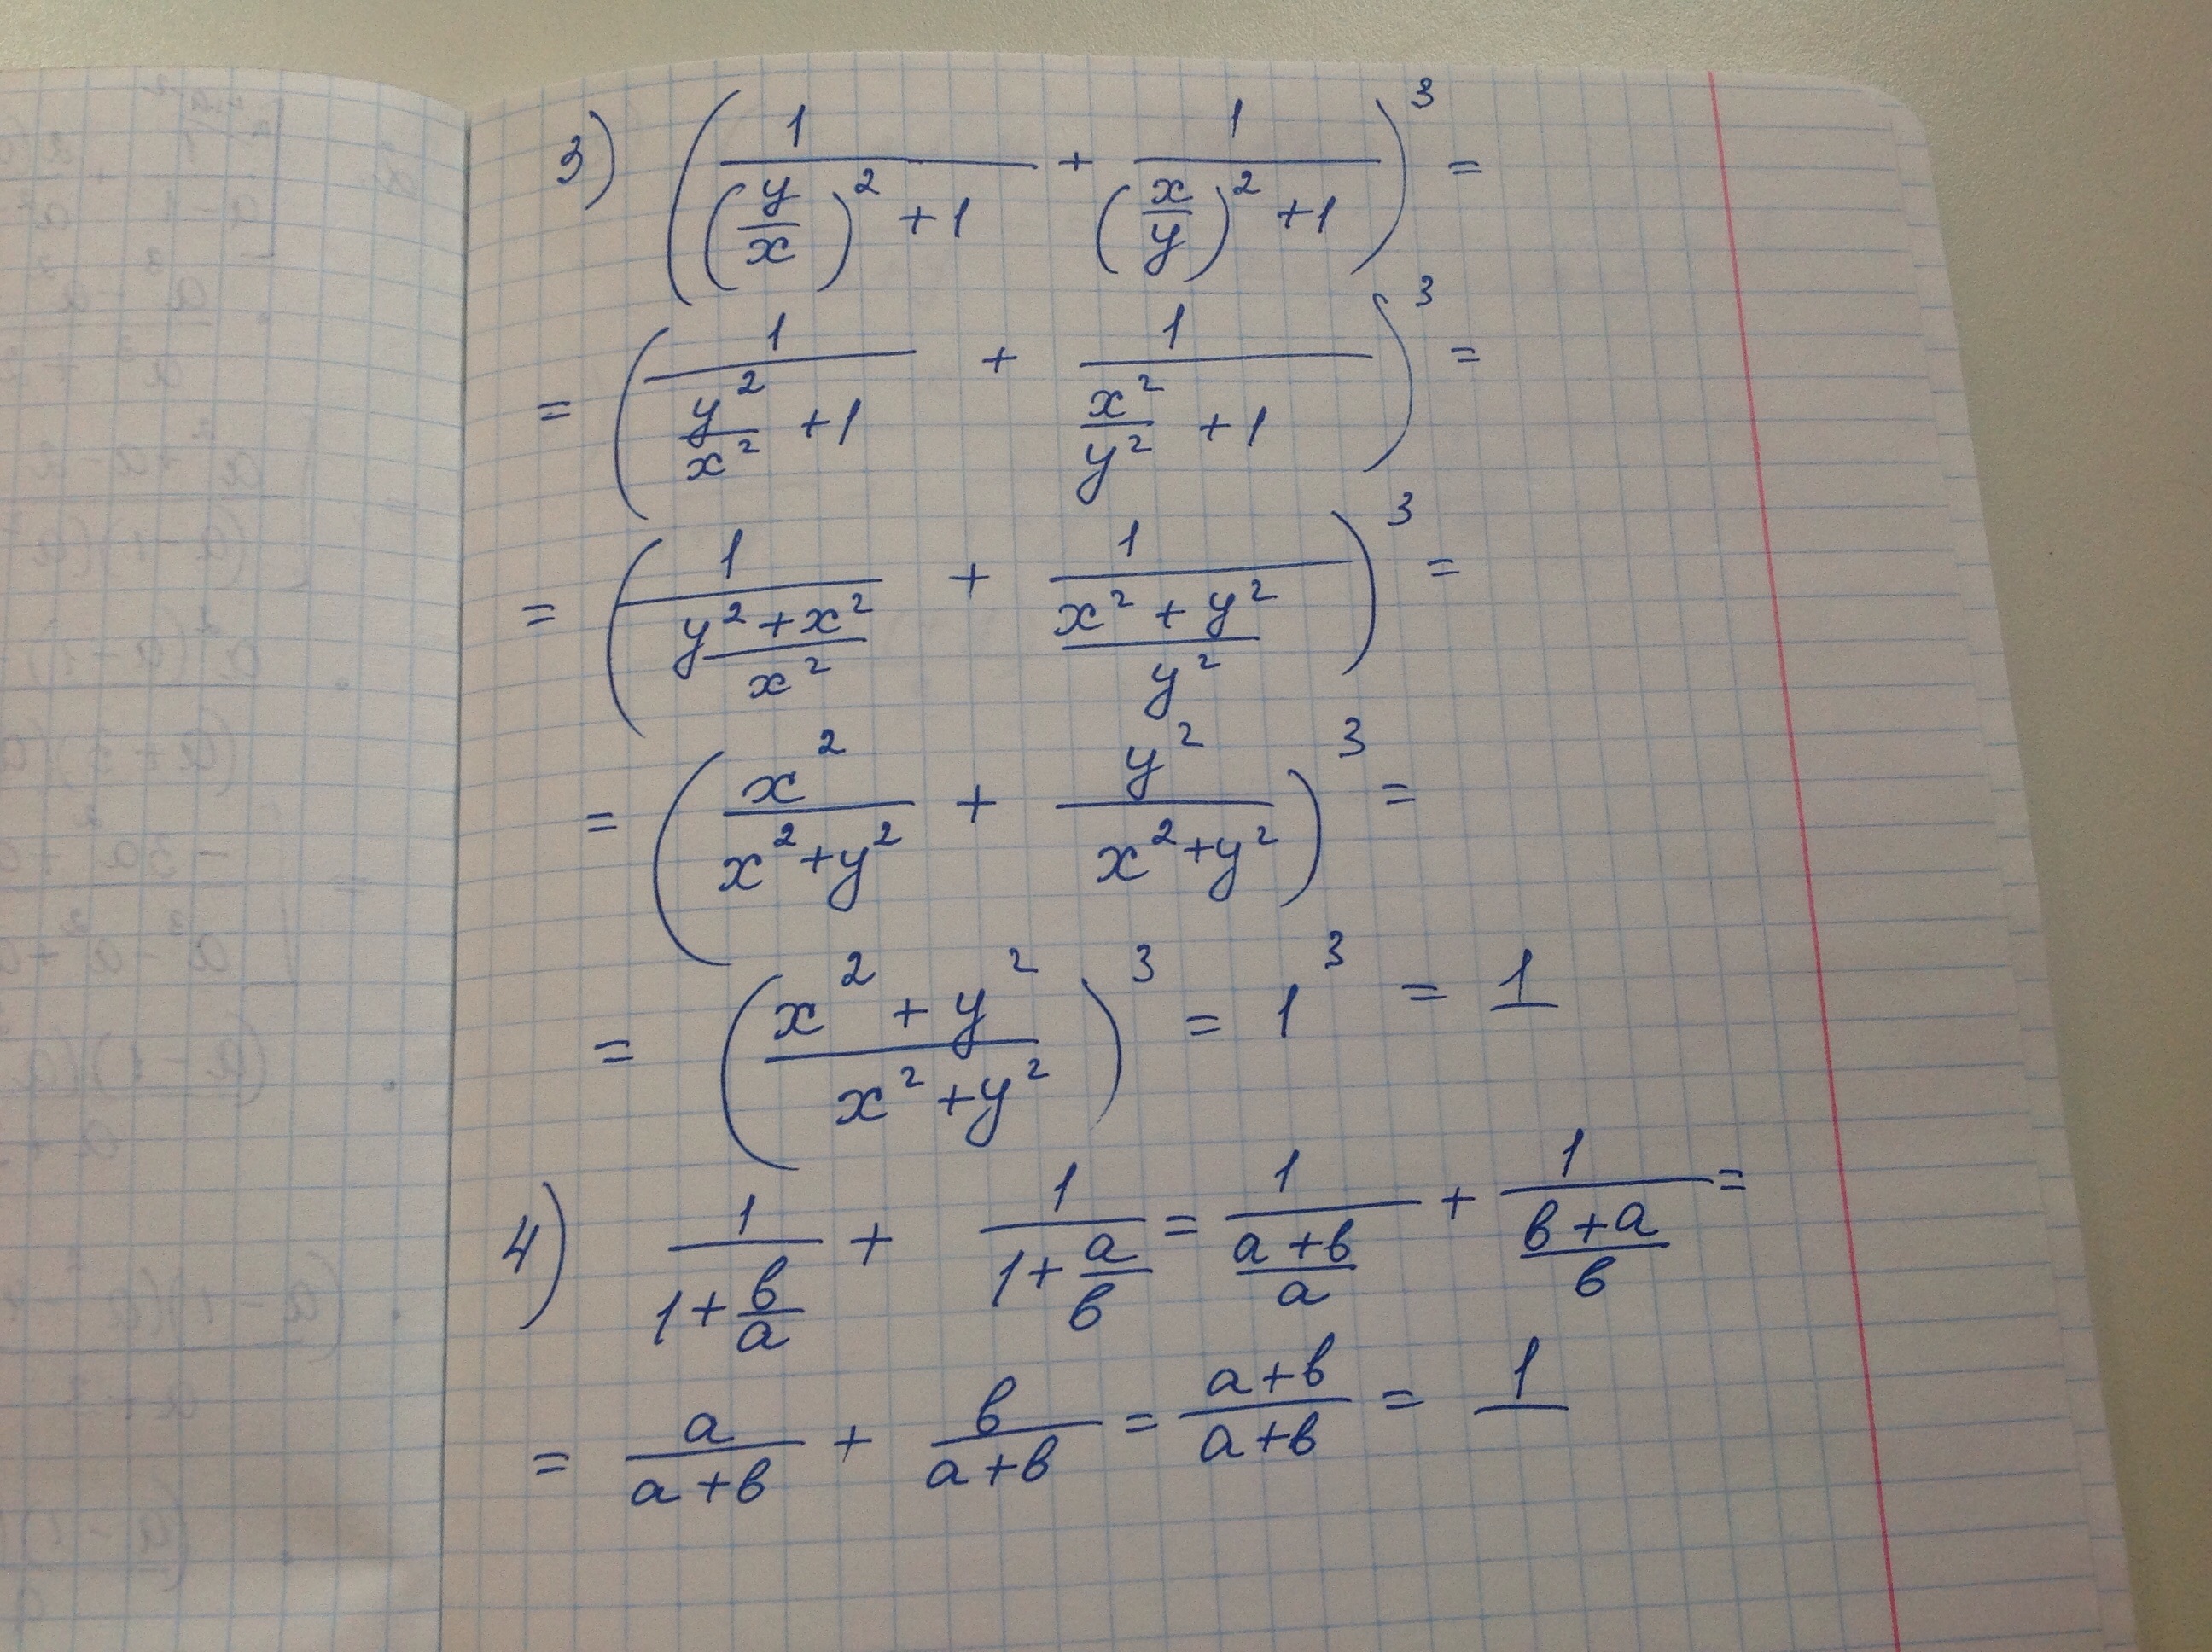 3) (1/((y/x)² + 1) + 1/((x/y)² + 1))³ =
= (1/(y²/x² + 1) + 1/(x²/y² + 1))³ =
= (1/((y² + x²)/x²) + 1/((x² + y²)/y²))³ =
= (x²/(x² + y²) + y²/(x² + y²))³ =
= ((x² + y²)/(x² + y²))³ = 1³ = 1
4) 1/(1 + в/а) + 1/(1 + а/в) = 1/((а + в)/а) + 1/((в + а)/в) =
= а/(а + в) + в/(а + в) = (а + в)/(а + в) = 1